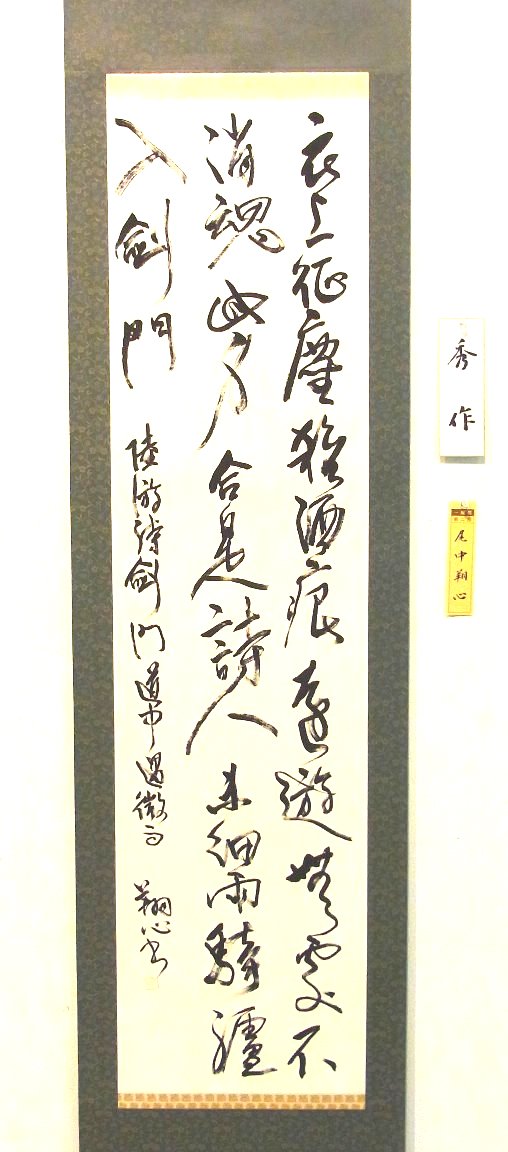 衣上征塵雜酒痕遠遊無處不
消魂此身合是詩人未細雨騎驢
入劍門
陸游詩劍門道中遇微雨 翔心書
秀作
尾中翔心